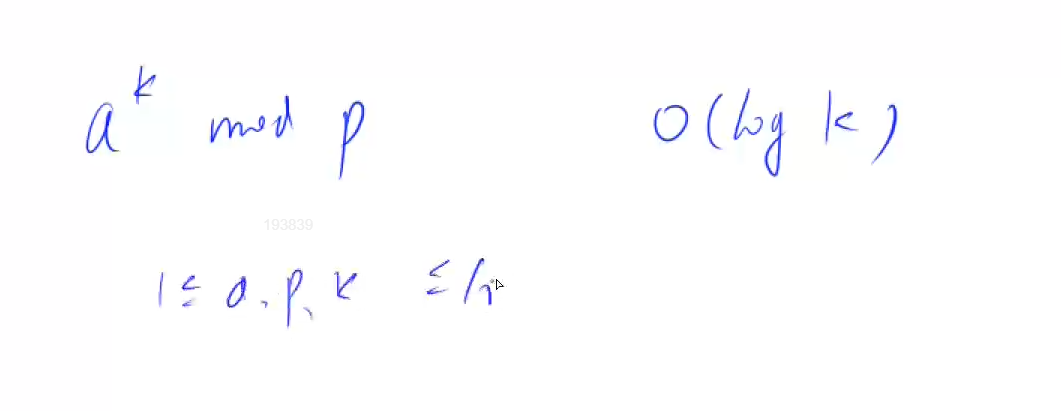 a^k mod p O(log k)
193839
1 ≤ a, p, k ≤